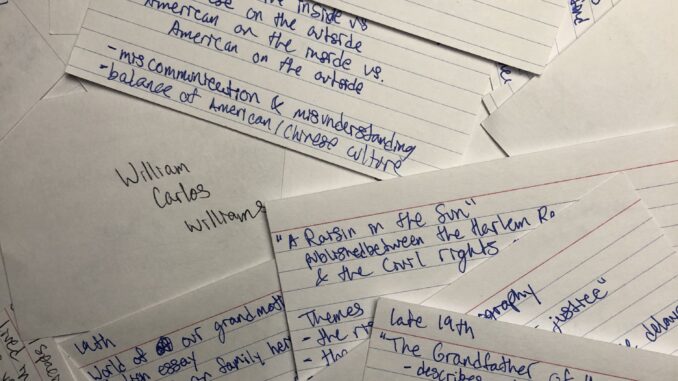 inside vs
on the outside
American on the inside vs.
American on the outside
- miscommunication & misunderstanding
- balance of American/Chinese culture
William
Carlos
Williams
"A Raisin in the Sun"
published between the Harlem Re
& the Civil rights
Themes
- the
19th
World of our grandmot
essay
family her
graphy
justice"
late 19th
"The Grandfather of
- describes